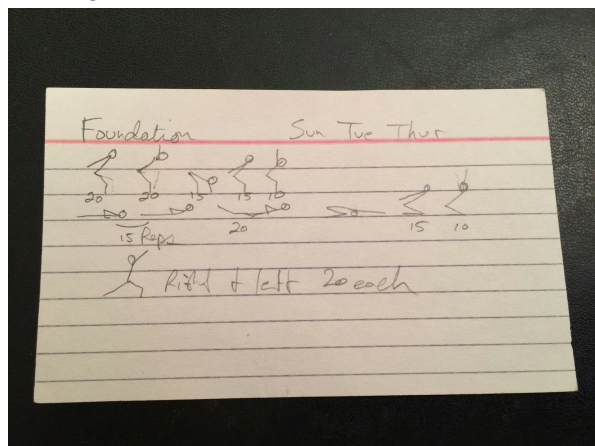 Foundation Sun Tue Thur
20 20 15 15 10
15 Reps 20 15 10
Right + left 20 each